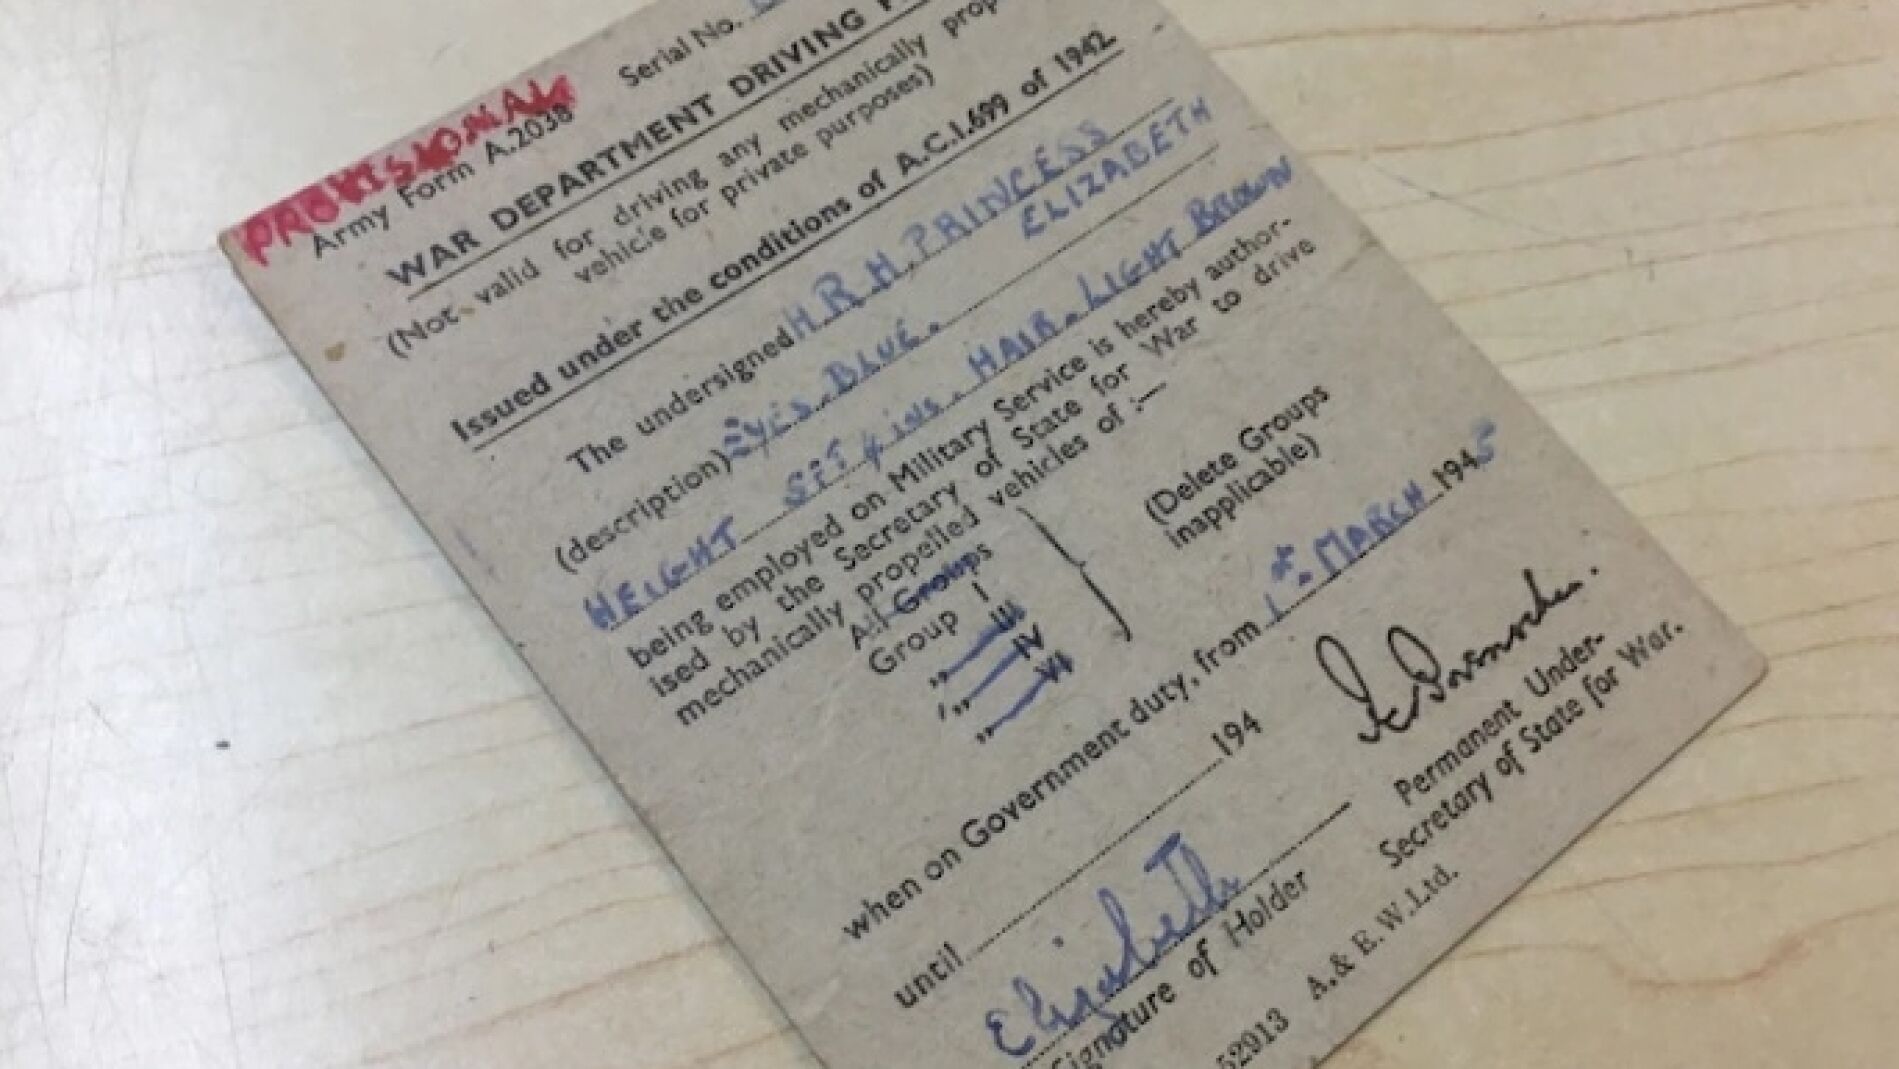 PROVISIONAL
Army Form A.2038
Serial No.
WAR DEPARTMENT DRIVING
(Not valid for driving any mechanically
vehicle for private purposes)
Issued under the conditions of A.C.I.699 of 1942
The undersigned H R H. PRINCESS
ELIZABETH
(description) EYES. BLUE.
HEIGHT 5FT 4 ins. HAIR. LIGHT BROWN
being employed on Military Service is hereby author-
ised by the Secretary of State for War to drive
mechanically propelled vehicles of :—
All Groups
Group I
„ III
„ IV
„ VI
(Delete Groups
inapplicable)
when on Government duty, from 1st. MARCH 1945
until 194
Elizabeth
Signature of Holder
Permanent Under-
Secretary of State for War.
52913 A. & E.W.Ltd.